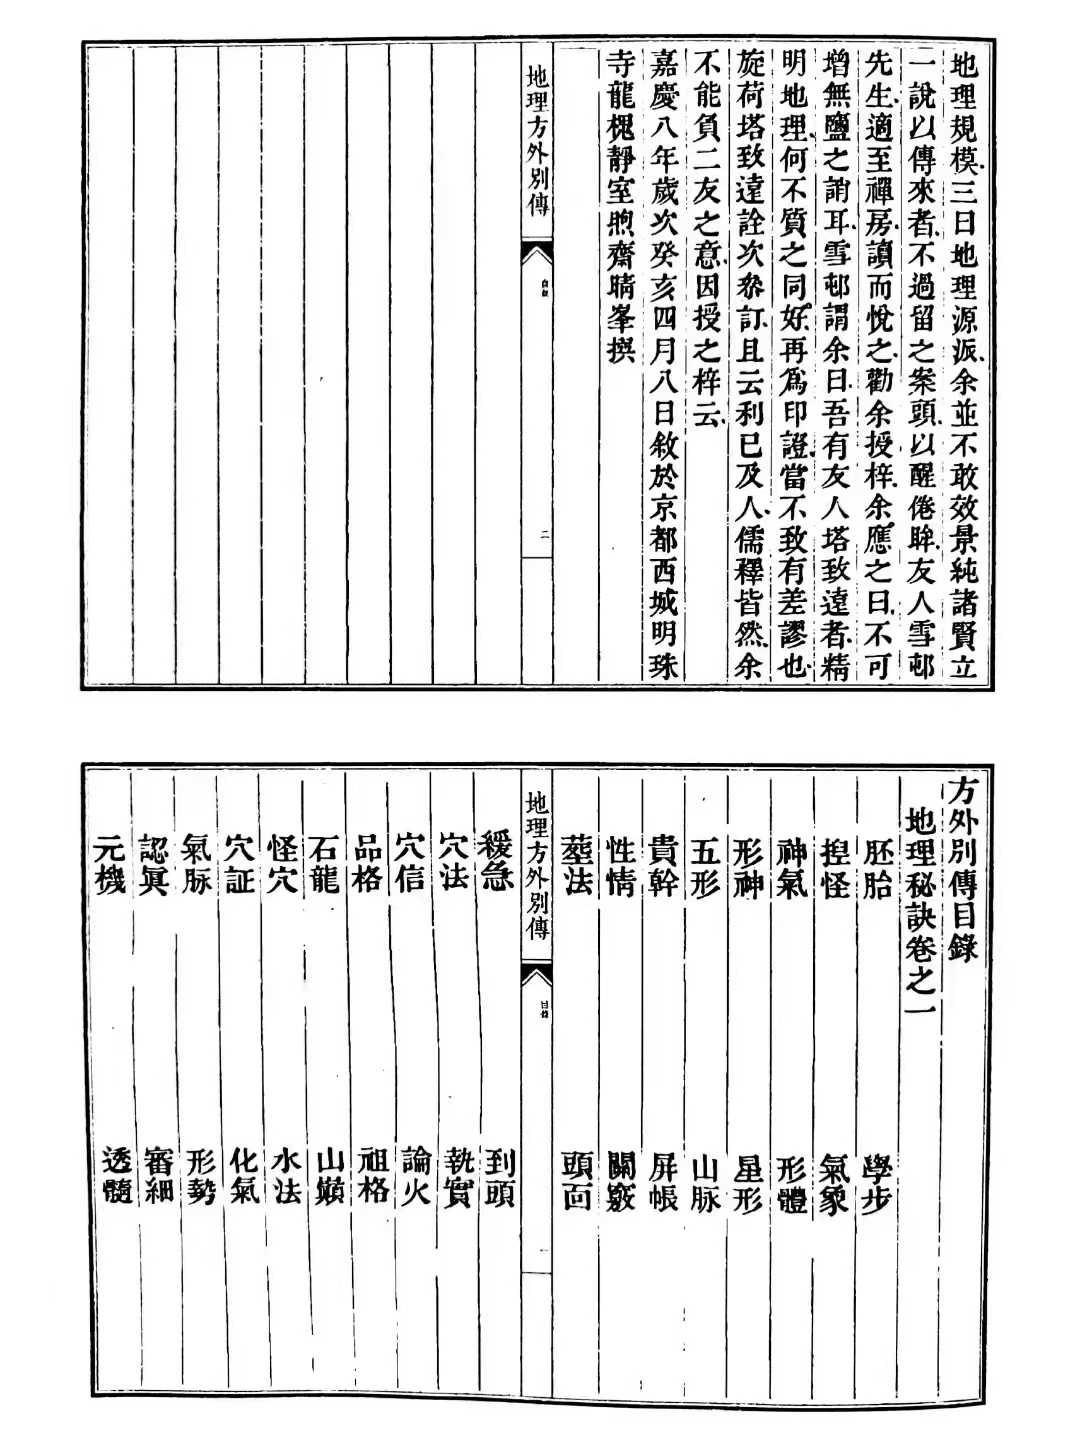 地理規模三曰地理源派余並不敢效景純諸賢立
一說以傳來者不過留之案頭以醒倦眸友人雪邨
先生適至禪房讀而悅之勸余授梓余應之曰不可
增無鹽之誚耳雪邨謂余曰吾有友人塔致遠者精
明地理何不質之同好再為印證當不致有差謬也
旋荷塔致遠詮次參訂且云利已及人儒釋皆然余
不能負二友之意因授之梓云
嘉慶八年歲次癸亥四月八日敘於京都西城明珠
寺龍槐靜室煦齋晴峯撰
地理方外別傳
自敘
二
方外別傳目錄
地理秘訣卷之一
胚胎 學步
揑怪 氣象
神氣 形體
形神 星形
五形 山脉
貴幹 屏帳
性情 關竅
塟法 頭面
地理方外別傳
目錄
一
緩急 到頭
穴法 執實
穴信 論火
品格 祖格
石龍 山巔
怪穴 水法
穴証 化氣
氣脉 形勢
認眞 審細
元機 透髓